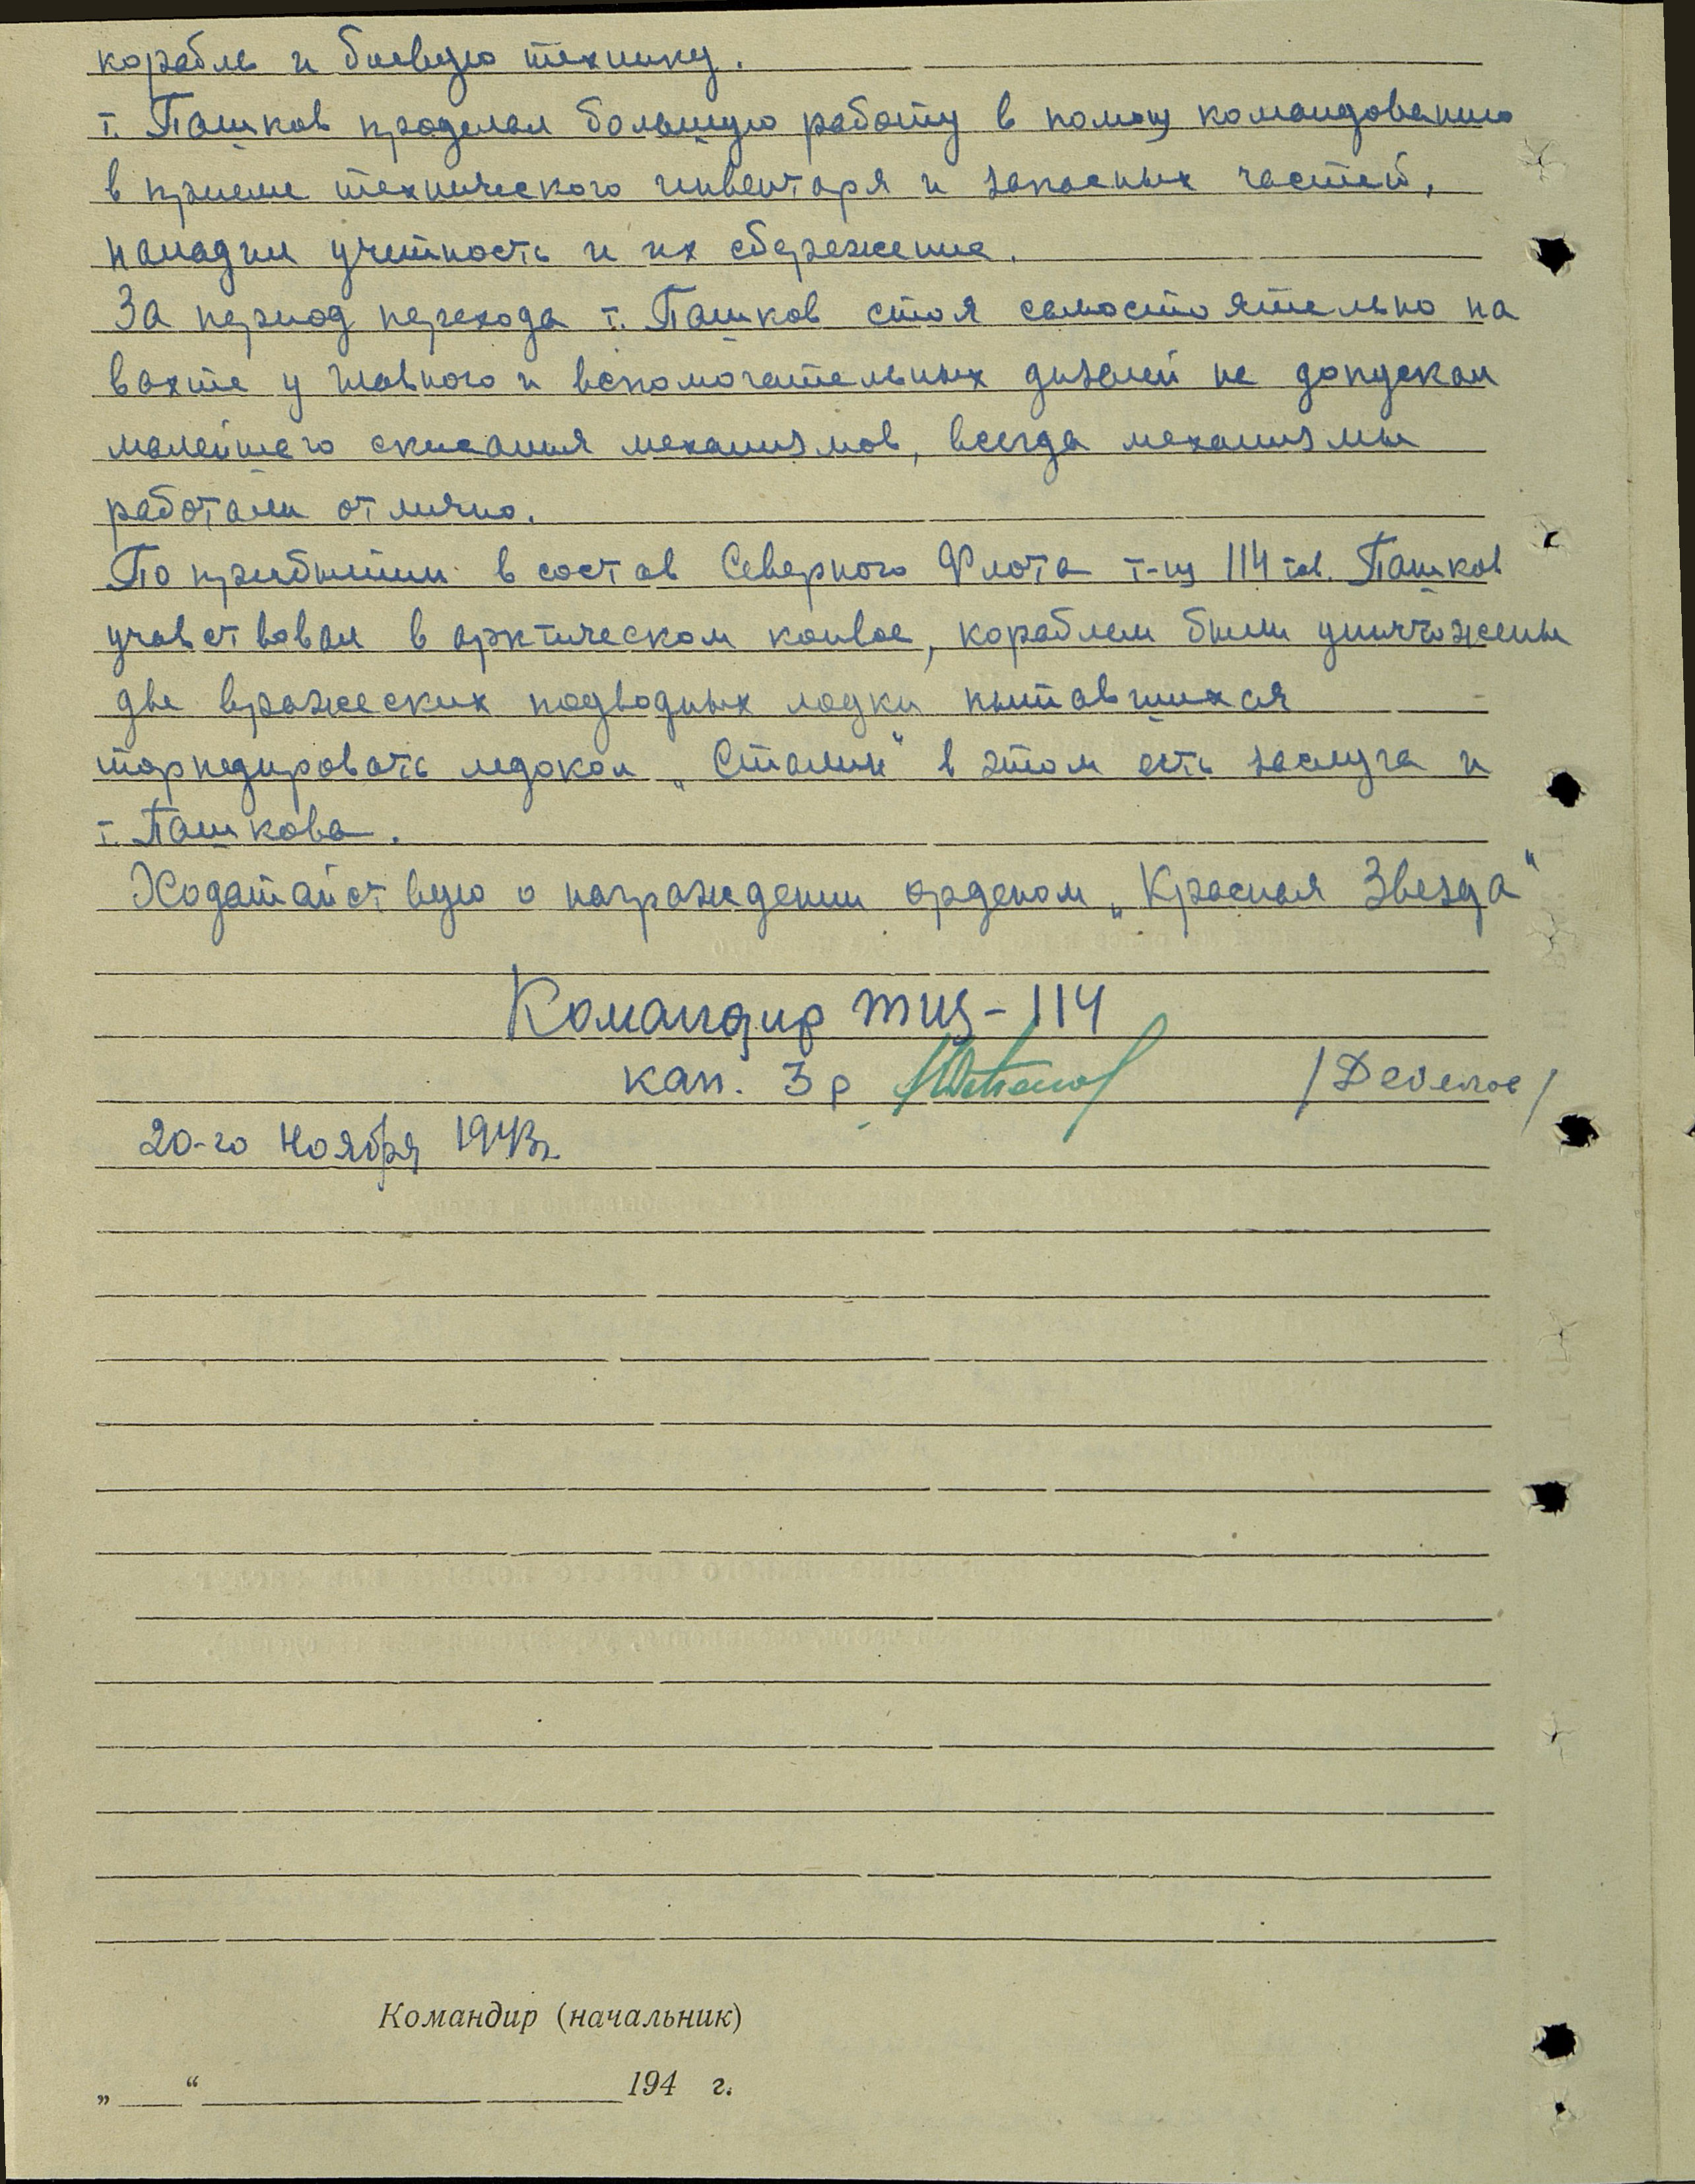 корабль и боевую технику.
т. Пашков проделал большую работу в помощ командованию
в приеме технического инвентаря и запасных частей,
наладил учетность и их сбережение.
За период перехода т. Пашков стоя самостоятельно на
вахте у главного и вспомогательных дизелей не допускал
малейшего скисания механизмов, всегда механизмы
работали отлично.
По прибытии в состав Северного Флота т-щ 114 тов. Пашков
учавствовал в арктическом конвое, кораблем были уничтожены
две вражеских подводных лодки пытавшихся
торпедировать ледокол „Сталин“ в этом есть заслуга и
т. Пашкова.
Ходатайствую о награждении орденом „Красная Звезда“
Командир тщ-114
кап. 3 р /Дебелов/
20-го Ноября 1943г.
Командир (начальник)
„ “ 194 г.